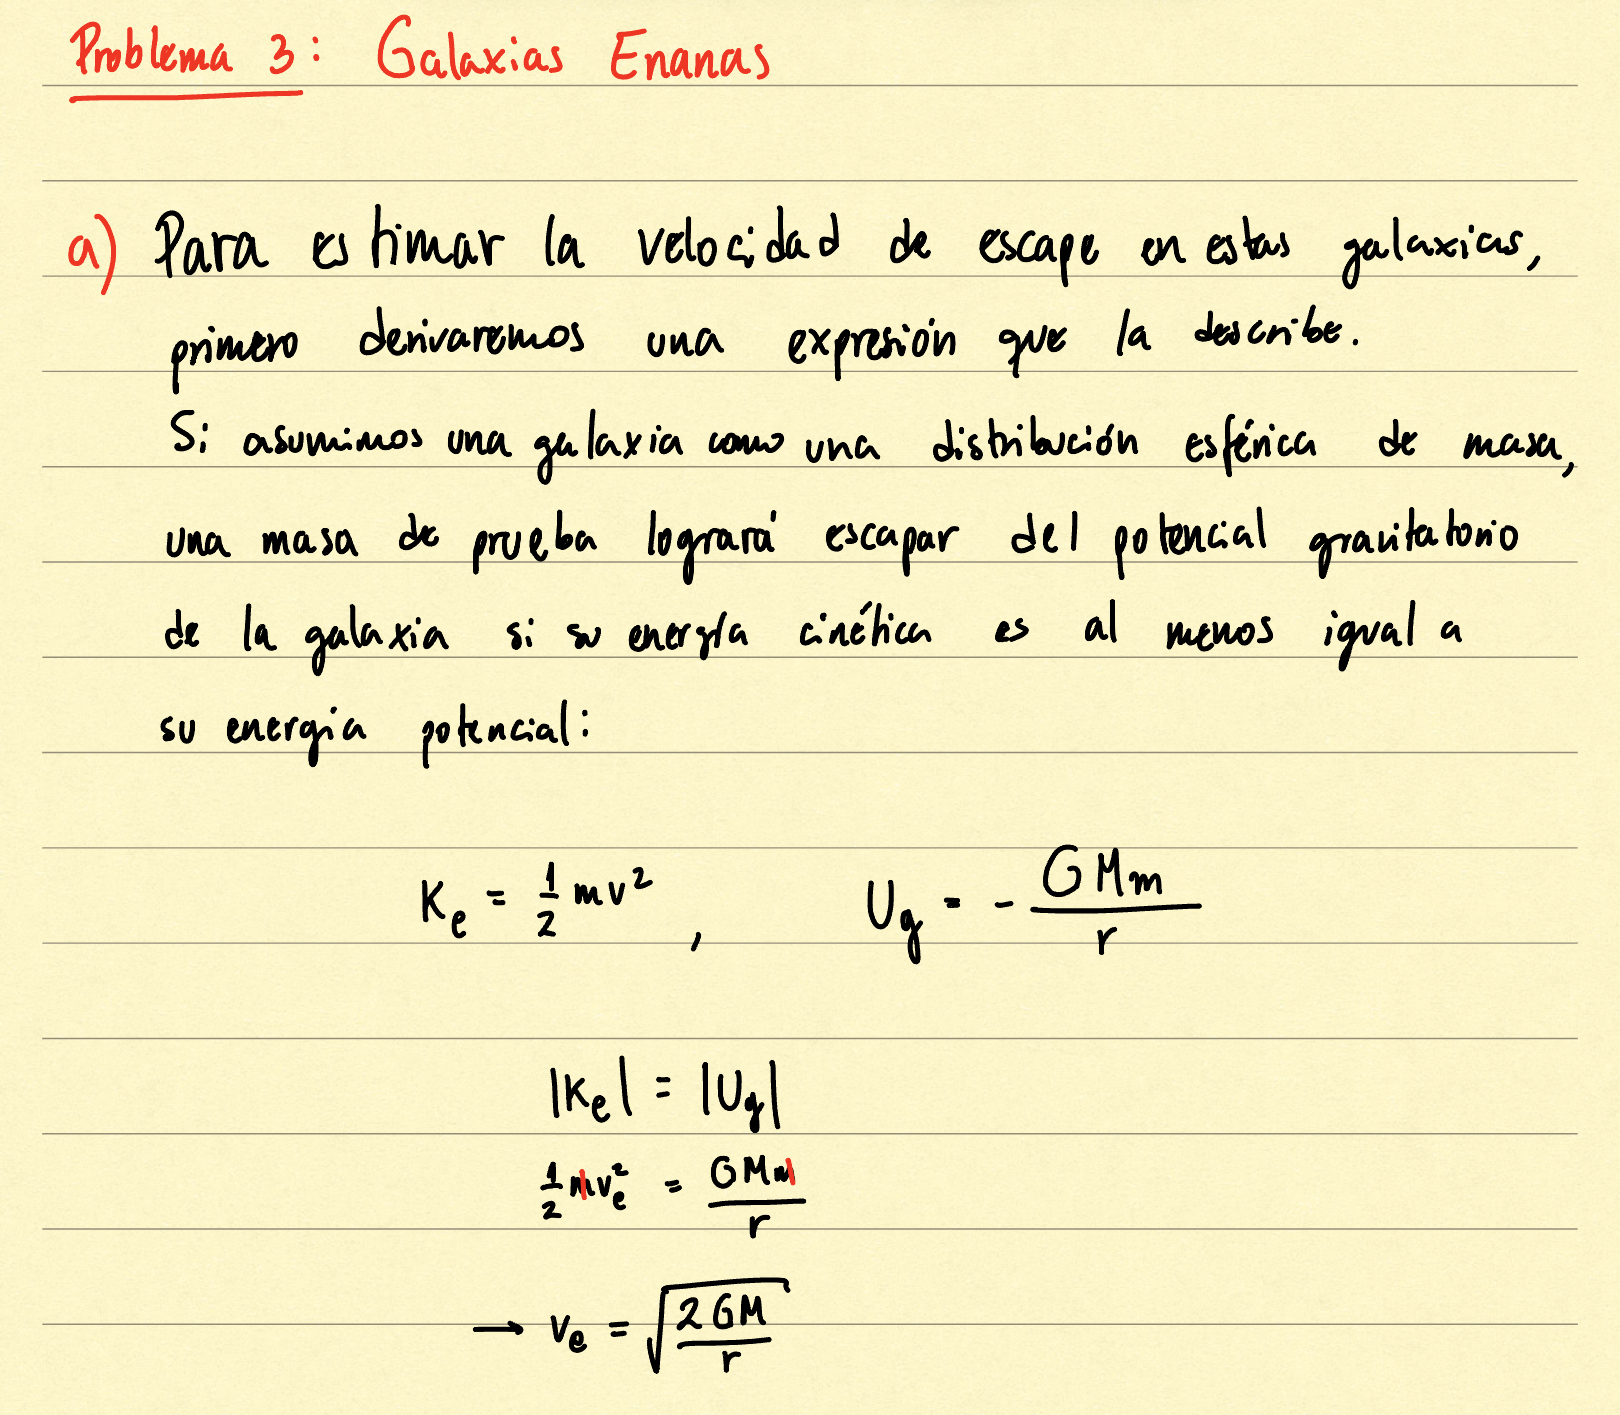 Problema 3: Galaxias Enanas
a) Para estimar la velocidad de escape en estas galaxias,
primero derivaremos una expresión que la describe.
Si asumimos una galaxia como una distribución esférica de masa,
una masa de prueba logrará escapar del potencial gravitatorio
de la galaxia si su energía cinética es al menos igual a
su energía potencial:
K_e = 1/2 mv², U_g = - GMm/r
|K_e| = |U_g|
1/2 mv_e² = GMm/r
→ v_e = √(2GM/r)